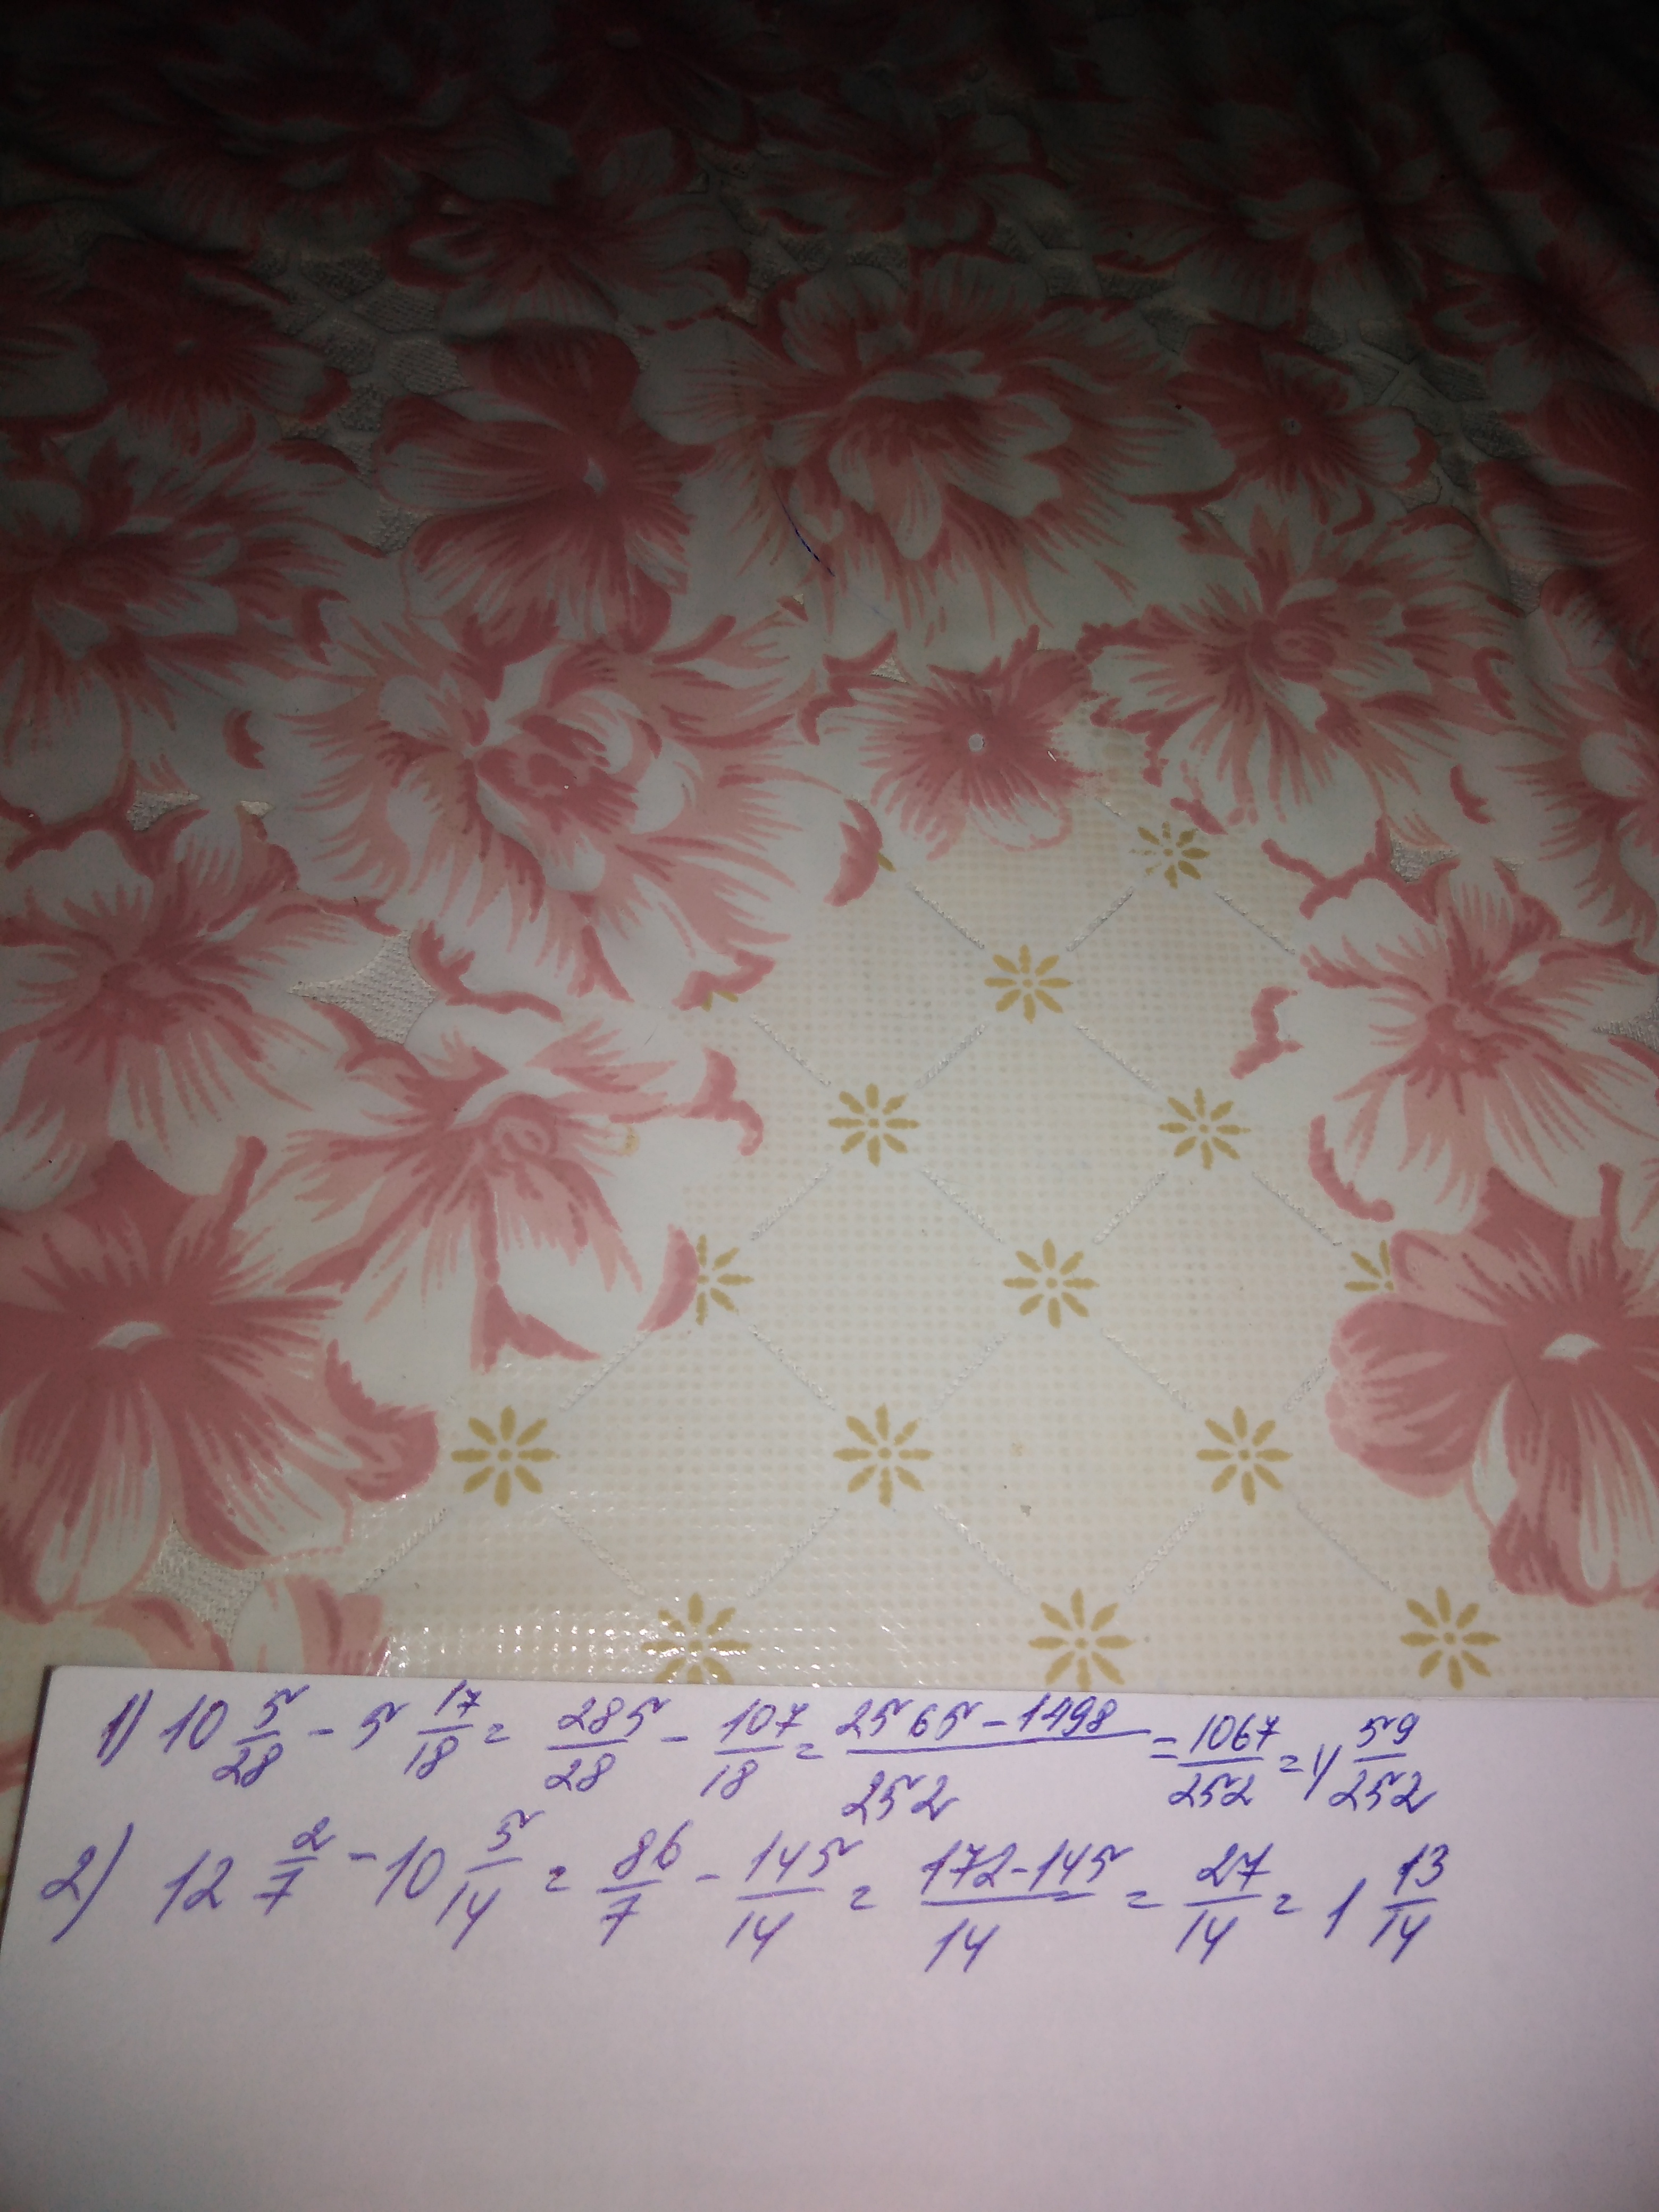 1) 10 5/28 - 5 17/18 = 285/28 - 107/18 = 2565-1498/252 = 1067/252 = 4 59/252
2) 12 2/7 - 10 5/14 = 86/7 - 145/14 = 172-145/14 = 27/14 = 1 13/14